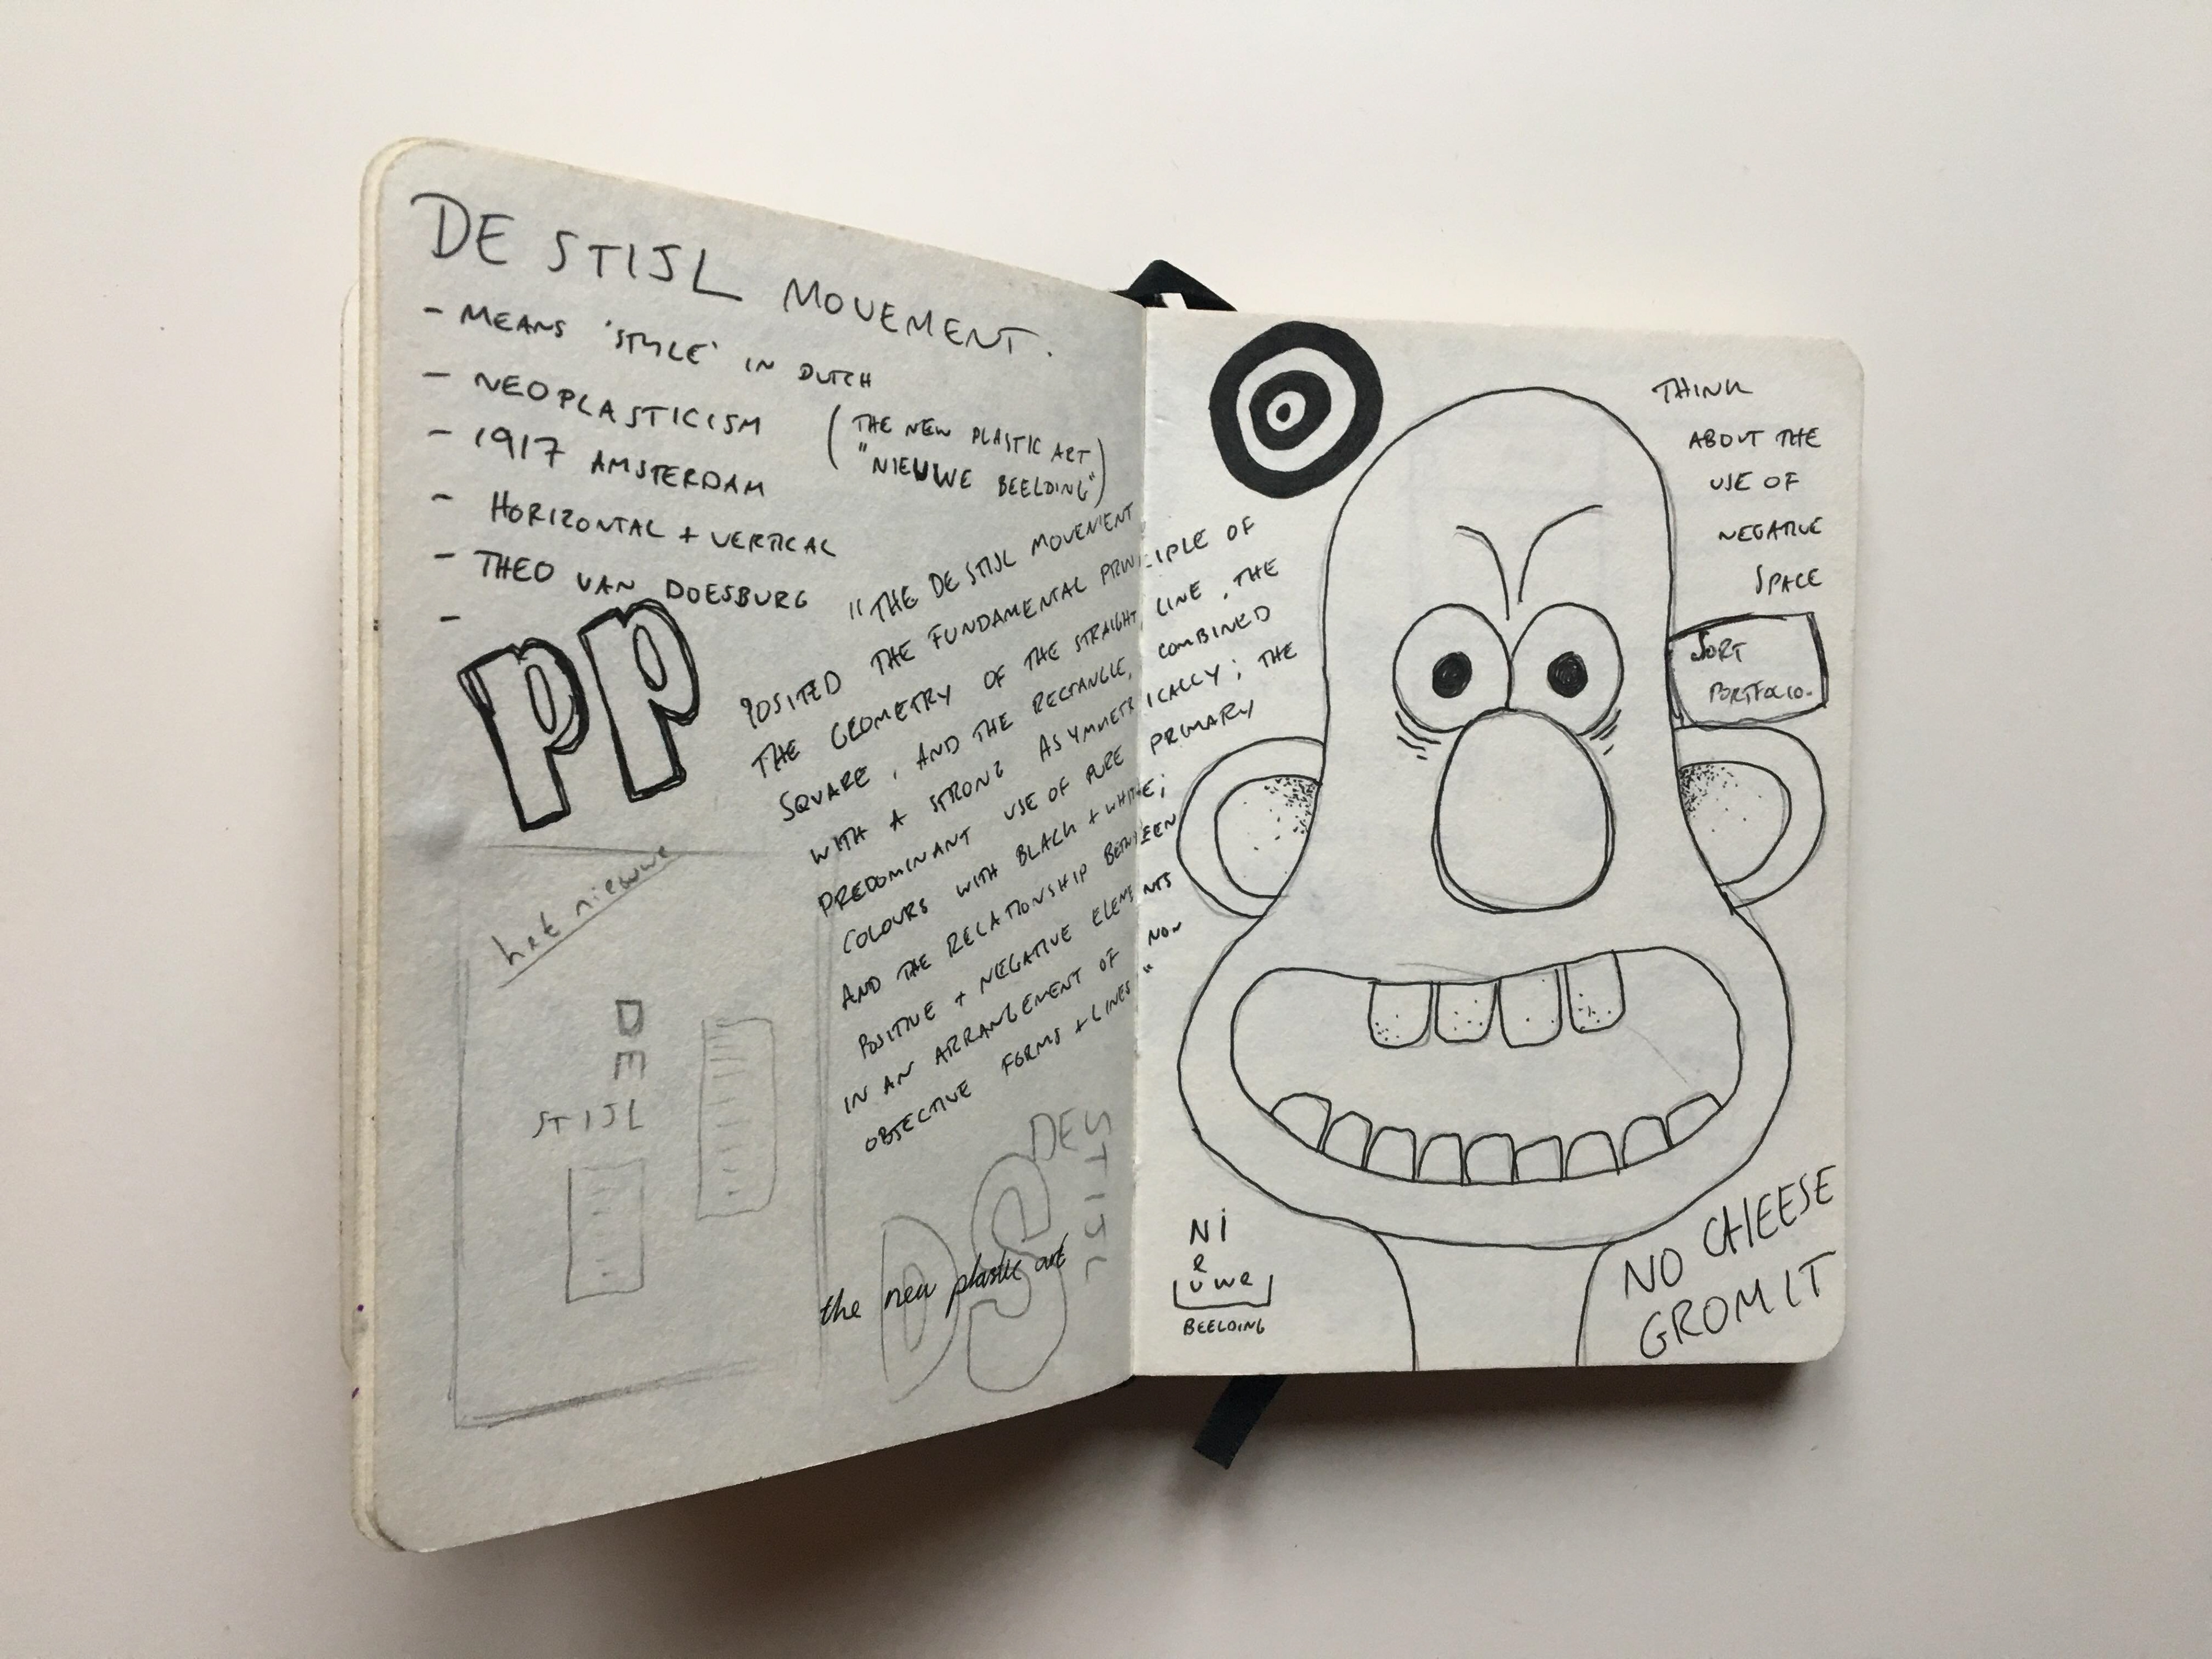 DE STIJL MOVEMENT.
- MEANS 'STYLE' IN DUTCH
- NEOPLASTICISM (THE NEW PLASTIC ART
"NIEUWE BEELDING")
- 1917 AMSTERDAM
- HORIZONTAL + VERTICAL
- THEO VAN DOESBURG
-
PP
"THE DE STIJL MOVEMENT
POSITED THE FUNDAMENTAL PRINCIPLE OF
THE GEOMETRY OF THE STRAIGHT LINE, THE
SQUARE, AND THE RECTANGLE, COMBINED
WITH A STRONG ASYMMETRICALLY; THE
PREDOMINANT USE OF PURE PRIMARY
COLOURS WITH BLACK + WHITE;
AND THE RELATIONSHIP BETWEEN
POSITIVE + NEGATIVE ELEMENTS
IN AN ARRANGEMENT OF NON
OBJECTIVE FORMS + LINES"
het nieuwe
DE
STIJL
DE
STIJL
DS
the new plastic art
THINK
ABOUT THE
USE OF
NEGATIVE
SPACE
SORT
PORTFOLIO.
NI
e
uwe
BEELDING
NO CHEESE
GROMIT